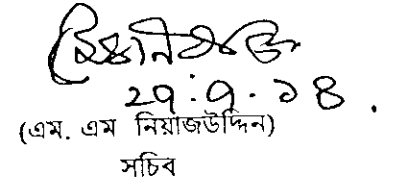 ২৭.৭.১৪.
(এম. এম নিয়াজউদ্দিন)
সচিব